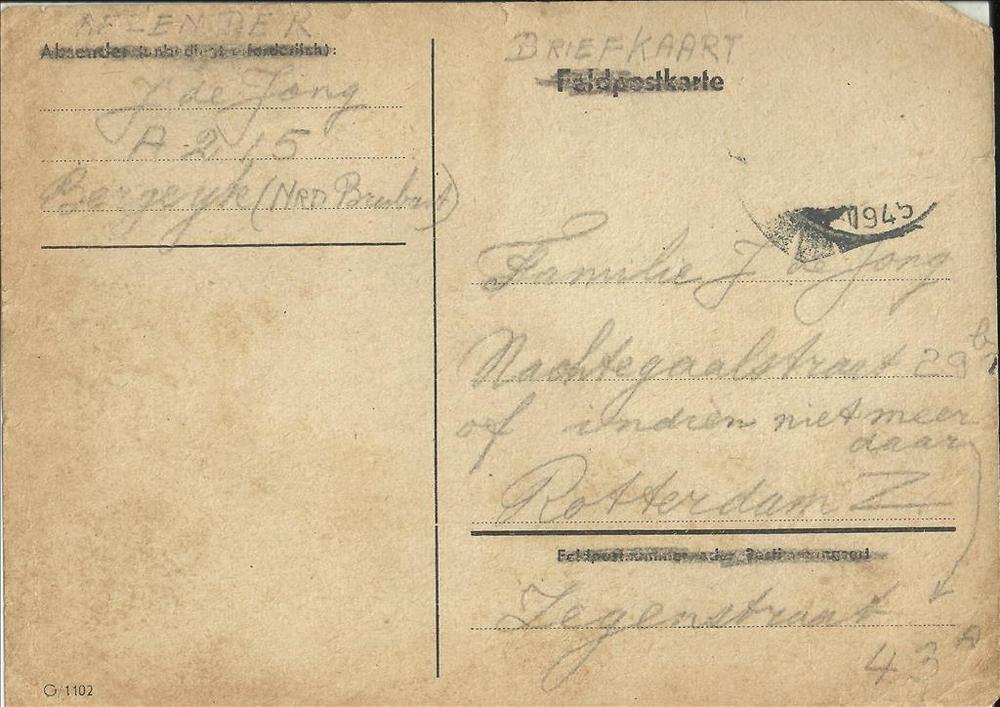 AFZENDER
Absender (unbedingt erforderlich):
J de Jong
A 215
Bergeyk (NRD Brabant)
G/1102
BRIEFKAART
Feldpostkarte
1945
Familie J de Jong
Nachtegaalstraat 29 b
of indien niet meer
daar
Rotterdam Z
Feldpostnummer oder Postleitungsort
Zegenstraat
43 A